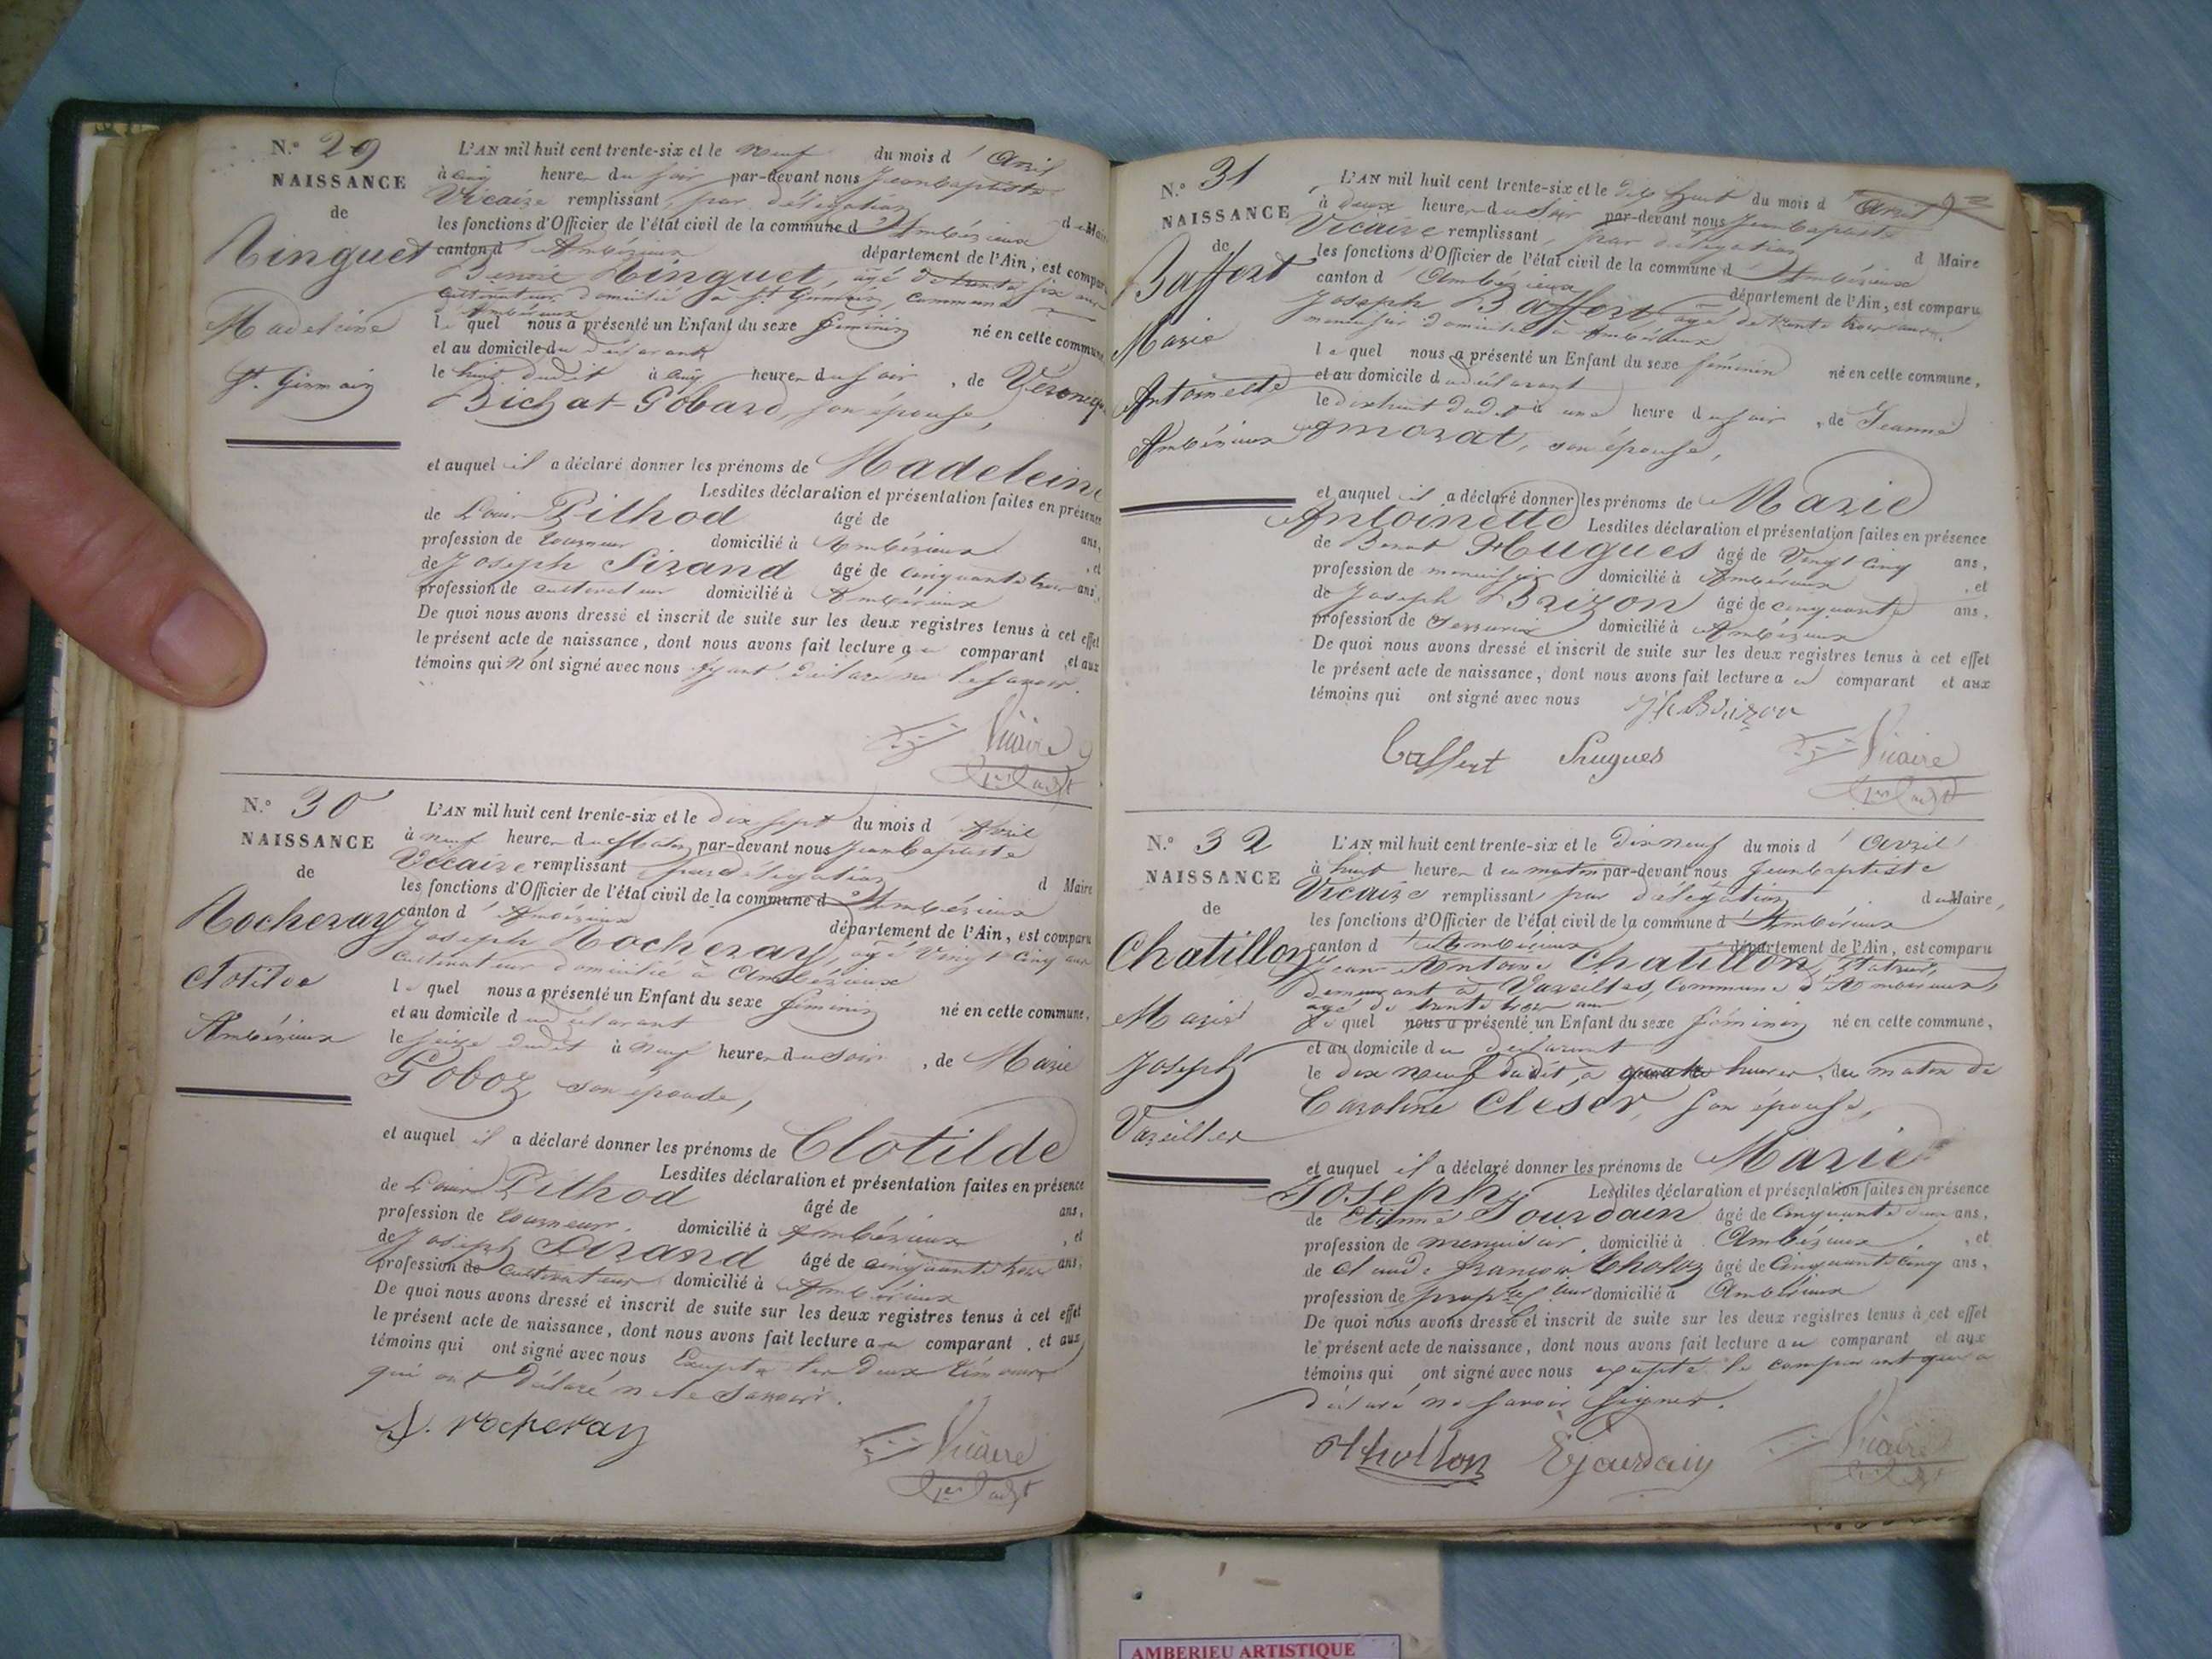 N.° 29
NAISSANCE
de
Ringuet
Madeleine
St. Germain
L'AN mil huit cent trente-six et le neuf du mois d'Avril
à cinq heures du soir par-devant nous Jean Baptiste
Vicaire remplissant, par délégation d Maire
les fonctions d'Officier de l'état civil de la commune d'Ambérieux
canton d'Ambérieux département de l'Ain, est comparu
Ringuet, âgé de trente six ans
cultivateur domicilié à St Germain, commune
d'Ambérieux
lequel nous a présenté un Enfant du sexe féminin né en cette commune
et au domicile du déclarant
le huit dudit à cinq heures du soir, de Veronique
Bichat-Gobard, son épouse,
et auquel il a déclaré donner les prénoms de Madeleine
Lesdites déclaration et présentation faites en présence
de Louis Pithod âgé de ans,
profession de tourneur domicilié à Ambérieux , et
de Joseph Sirand âgé de cinquante trois ans,
profession de cultivateur domicilié à Ambérieux
De quoi nous avons dressé et inscrit de suite sur les deux registres tenus à cet effet
le présent acte de naissance, dont nous avons fait lecture au comparant , et aux
témoins qui n'ont signé avec nous ayant déclaré ne le savoir.
Vicaire
N.° 30
NAISSANCE
de
Rocheray
Clotilde
Ambérieux
L'AN mil huit cent trente-six et le dix sept du mois d'Avril
à neuf heures du Matin par-devant nous Jean Baptiste
Vicaire remplissant par délégation d Maire
les fonctions d'Officier de l'état civil de la commune d'Ambérieux
canton d'Ambérieux département de l'Ain, est comparu
Joseph Rocheray, âgé Vingt cinq ans
cultivateur domicilié à Ambérieux
lequel nous a présenté un Enfant du sexe féminin né en cette commune,
et au domicile du déclarant
le seize dudit à neuf heures du soir , de Marie
Goboz son épouse,
et auquel il a déclaré donner les prénoms de Clotilde
Lesdites déclaration et présentation faites en présence
de Louis Pithod âgé de ans,
profession de tourneur, domicilié à Ambérieux , et
de Joseph Sirand âgé de cinquante trois ans,
profession de cultivateur domicilié à Ambérieux
De quoi nous avons dressé et inscrit de suite sur les deux registres tenus à cet effet
le présent acte de naissance, dont nous avons fait lecture au comparant , et aux
témoins qui ont signé avec nous Excepté les deux témoins
qui ont déclaré ne le savoir.
J. rocheray
Vicaire
N.° 31
NAISSANCE
de
Baffert
Marie
Antoinette
Ambérieux
L'AN mil huit cent trente-six et le dix huit du mois d'Avril
à deux heures du soir par-devant nous Jean Baptiste
Vicaire remplissant, par délégation d Maire
les fonctions d'Officier de l'état civil de la commune d'Ambérieux
canton d'Ambérieux département de l'Ain, est comparu
Joseph Baffert, âgé de trente trois ans,
menuisier domicilié à Ambérieux
lequel nous a présenté un Enfant du sexe féminin né en cette commune,
et au domicile du déclarant
le dixhuit dudit à une heure du soir , de Jeanne
morat, son épouse,
et auquel il a déclaré donner les prénoms de Marie
Antoinette Lesdites déclaration et présentation faites en présence
de Benoit Hugues âgé de Vingt cinq ans,
profession de menuisier domicilié à Ambérieux , et
de Joseph Brizon âgé de cinquante ans,
profession de serrurier domicilié à Ambérieux
De quoi nous avons dressé et inscrit de suite sur les deux registres tenus à cet effet
le présent acte de naissance, dont nous avons fait lecture au comparant et aux
témoins qui ont signé avec nous
Jh Brizon
baffert hugues Vicaire
N.° 32
NAISSANCE
de
Chatillon
Marie
Joseph
Vareilles
L'AN mil huit cent trente-six et le dix neuf du mois d'Avril
à huit heures du matin par-devant nous Jean baptiste
Vicaire remplissant par délégation du Maire,
les fonctions d'Officier de l'état civil de la commune d'Ambérieux
canton d'Ambérieux département de l'Ain, est comparu
Jean Antoine Chatillon,
demeurant à Vareilles, Commune d'Ambérieux
agé de trente trois ans
lequel nous a présenté un Enfant du sexe féminin né en cette commune,
et au domicile du déclarant
le dix neuf dudit, à quatre heures, du matin de
Caroline Cleser, son épouse,
et auquel il a déclaré donner les prénoms de Marie
Joseph Lesdites déclaration et présentation faites en présence
de Etienne Jourdain âgé de Cinquante deux ans,
profession de menuisier, domicilié à Ambérieux , et
de Claude françois âgé de Cinquante cinq ans,
profession de domicilié à Ambérieux
De quoi nous avons dressé et inscrit de suite sur les deux registres tenus à cet effet
le présent acte de naissance, dont nous avons fait lecture au comparant et aux
témoins qui ont signé avec nous excepté le comparant qui a
déclaré ne savoir signer.
Ejourdain Vicaire
AMBERIEU ARTISTIQUE